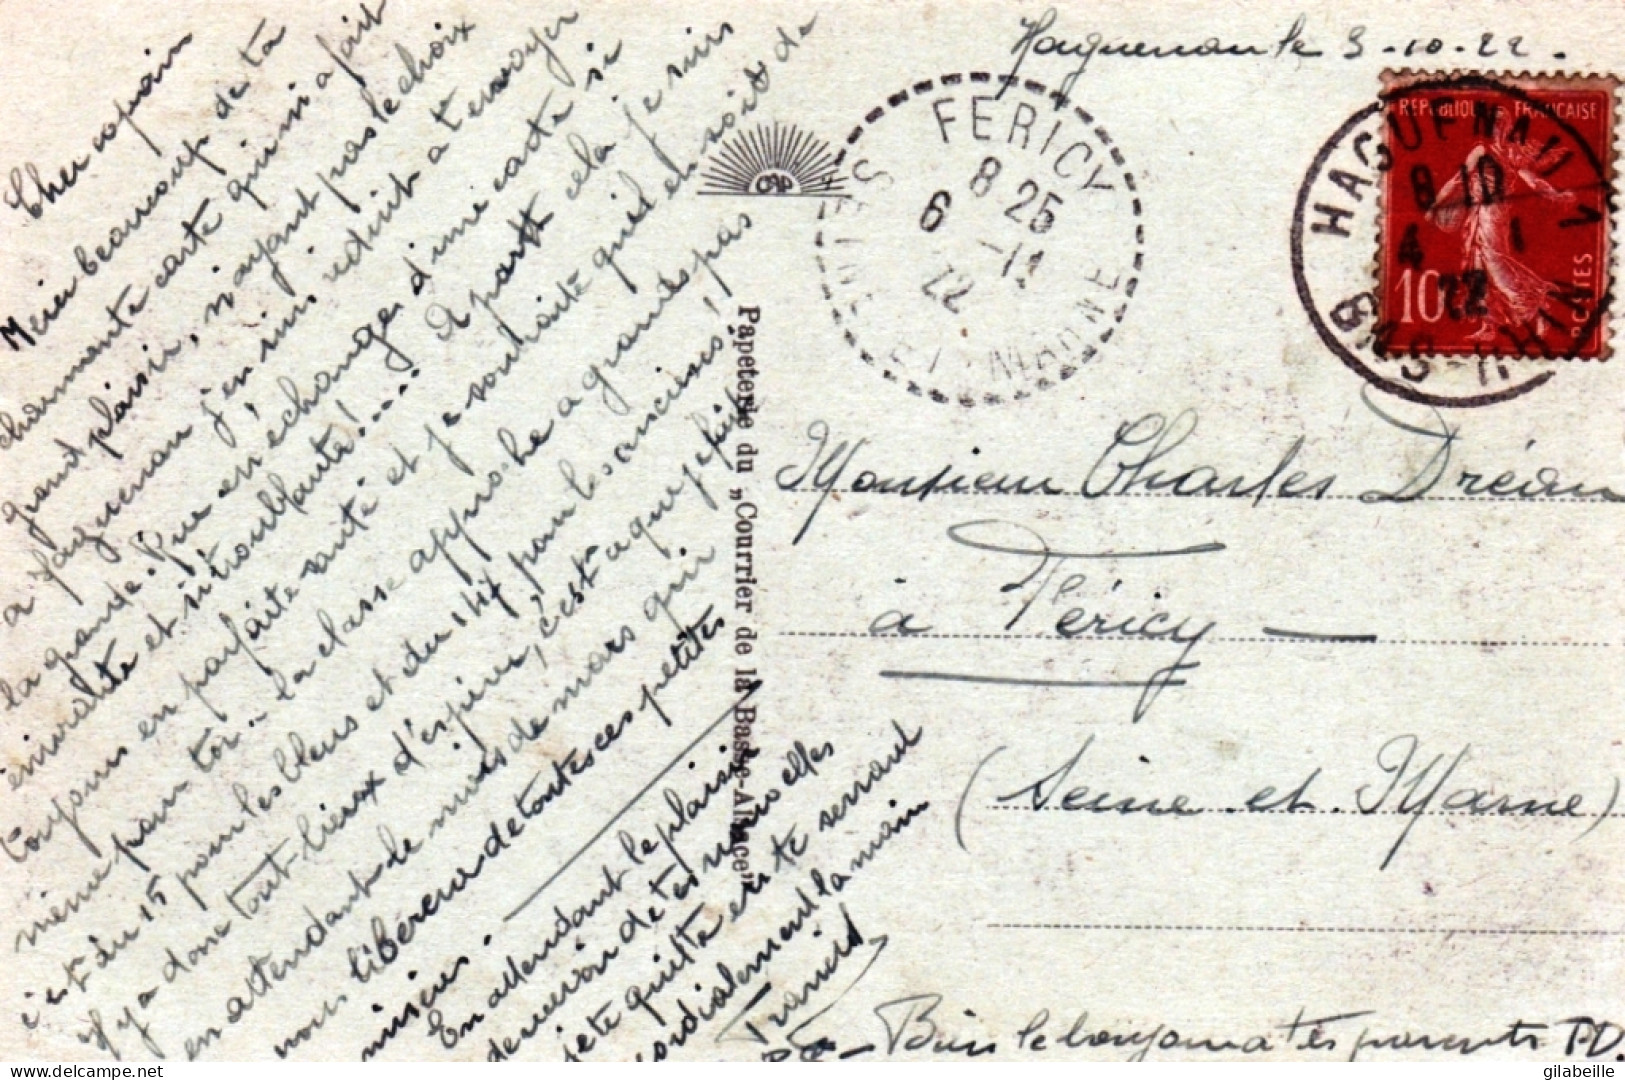 Haguenau le 3-10-22.
Cher copain
Merci beaucoup de ta
charmante carte qui m'a fait
grand plaisir, n'ayant pas le choix
a Haguenau j'en suis réduit a t'envoyer
la grande. Rue en échange d'une carte si
et si troublante!.... A part cela je suis
toujours en parfaite santé et je souhaite qu'il en soit de
même pour toi. - la classe approche a grands pas
c'est du 15 pour les bleus et du 147 pour les anciens!
il y a donc tout lieux d'espérer, c'est ce que je fais
en attendant le mois de mars qui
nous libérera de toutes ces petites
misères. En attendant le plaisir
de recevoir de tes nouvelles
je te quitte en te serrant
cordialement la main
Bien le bonjour a tes parents
Papeterie du „Courrier de la Basse-Alsace"
FERICY
8 25
6 -11
22
SEINE ET MARNE
REPUBLIQUE FRANCAISE
10
HAGUENAU 1
8 10
4 1
22
BAS-RHIN
Monsieur Charles Dréan
à Féricy
(Seine et Marne)
delcampe.net
gilabeille